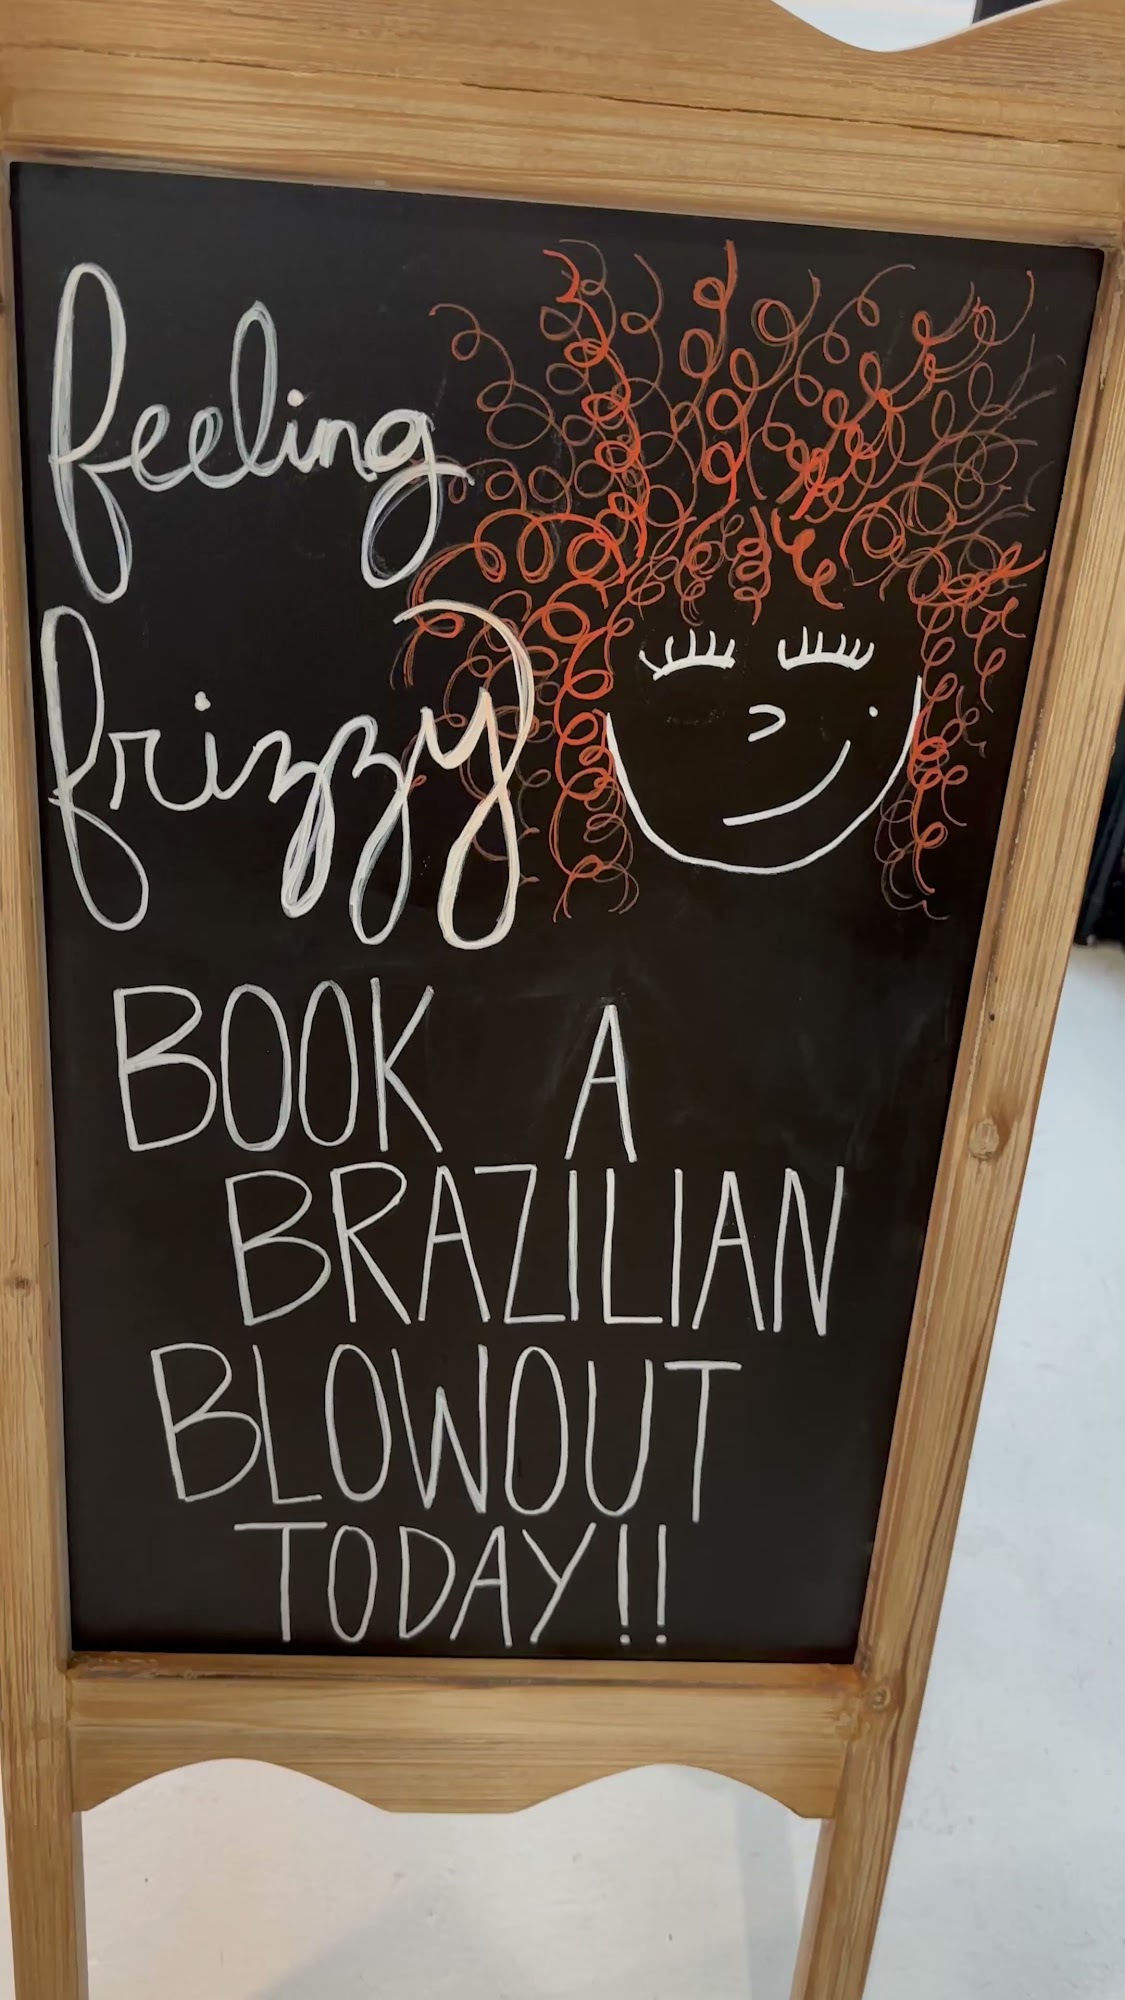 feeling
frizzy
BOOK A
BRAZILIAN
BLOWOUT
TODAY!!